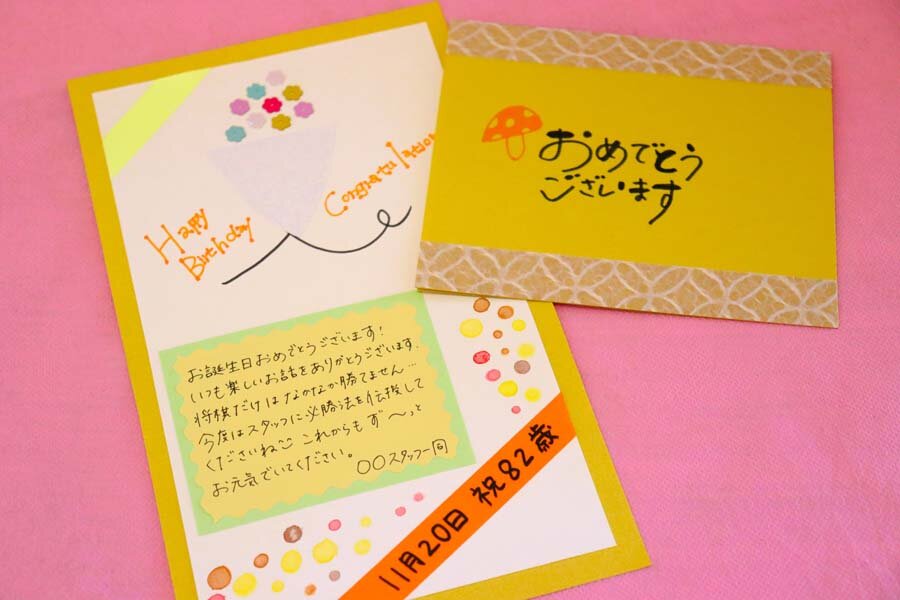 Happy
Birthday
Congratulation
おめでとう
ございます
お誕生日おめでとうございます！
いつも楽しいお話をありがとうございます。
将棋だけはなかなか勝てません…
今度はスタッフに必勝法を伝授して
くださいね♡これからもず〜っと
お元気でいてください。
〇〇スタッフ一同
11月20日 祝82歳